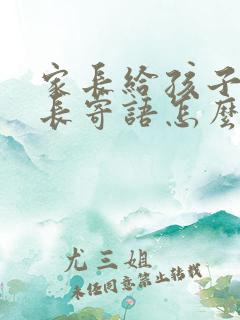 家長給孩子
長寄語怎麼
尤三姐
未经同意禁止转载